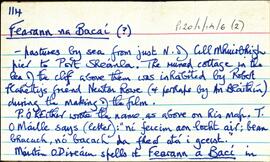 114
P120/1/14/6 (2)
Fearann na Bacaí (?)
- pastures by sea from just N. of Cill Mhuirbhigh
pier to Port Sheánla. The ruined cottage in the
lea of the cliff above them was inhabited by Robert
Flaherty's friend Neston Rowe (+ perhaps by Pat Skeirbin)
during the making of the film.
P. Ó hEithir wrote the name, as above on his map. T.
Ó Máille says (letter): 'ní feicim aon locht air; beann
bhacach, nó bacach dá fheod dá i gceist.'
Máirtín Ó Direáin spells it Fearann a Bací in